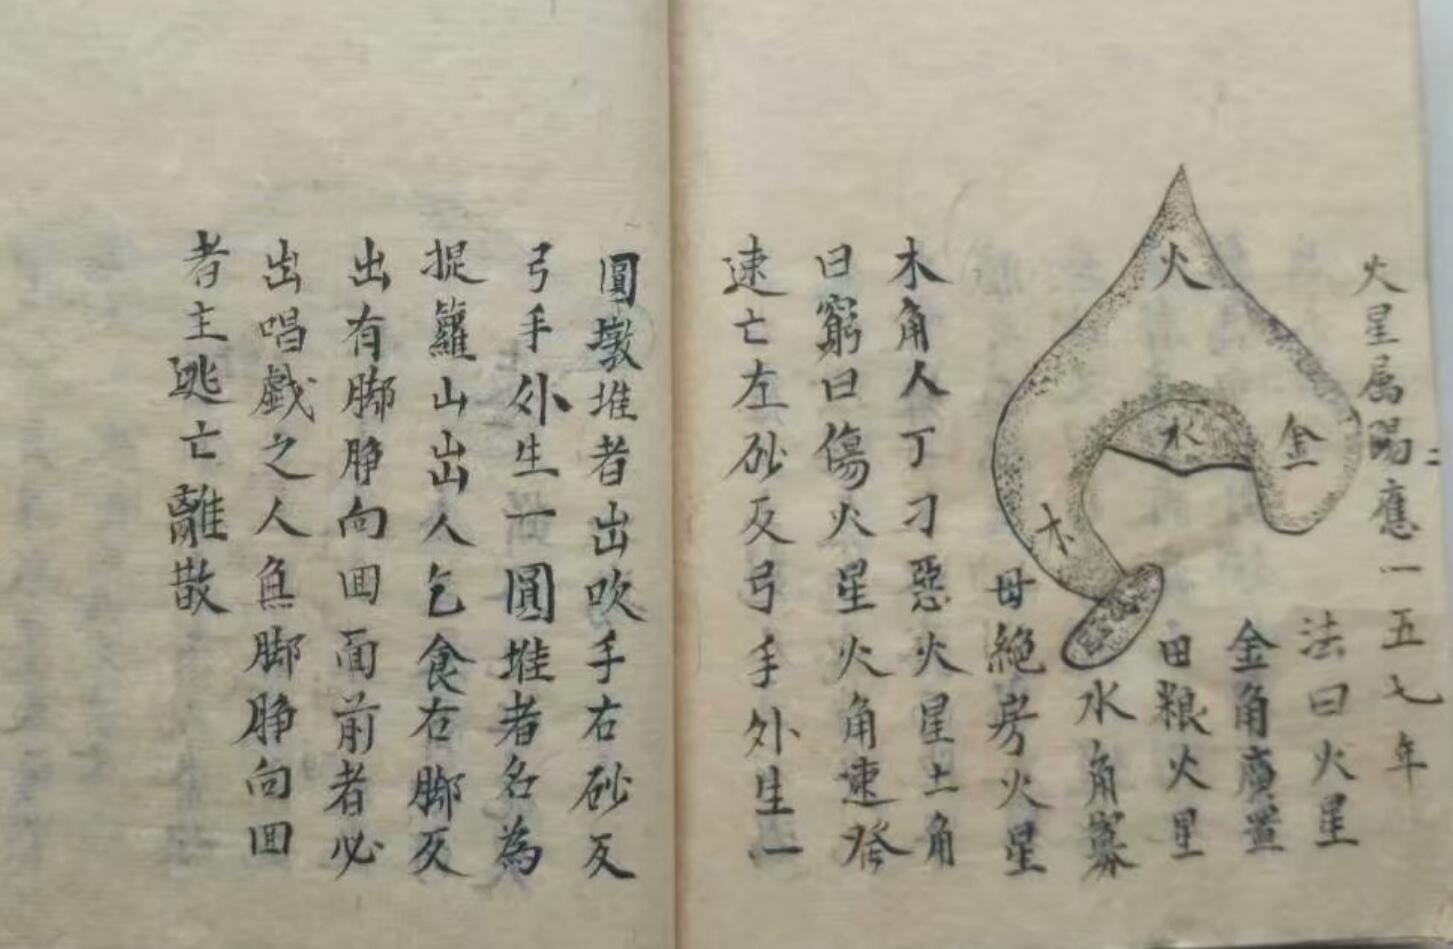 火星属陽應一五七年
二
火
金
水
木
法曰火星
金角廣置
田粮火星
水角寡
母絶房火星
木角人丁刁惡火星土角
曰窮曰傷火星火角速發
速亡左砂反弓手外生一
圓墩堆者出吹手右砂反
弓手外生一圓堆者名為
捉籮山出人乞食右脚反
出有脚向囬面前者必
出唱戲之人無脚向囬
者主逃亡離散